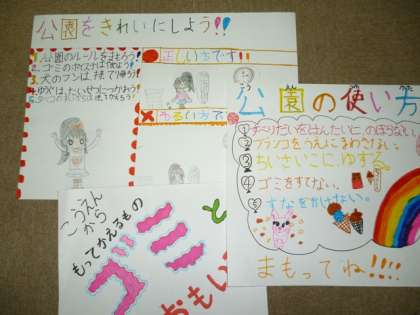 公園をきれいにしよう!!
1.公園のルールをまもろう!
2.ゴミのポイすてはやめよう!
3.犬のフンは、持ち帰ろう!
正しい方です!!
わるい方で
公園の使い方
①すべりだいをはんたいに、のぼらない。
②ブランコをうえにまわさない。
③ちいさいこにゆずる。
④ゴミをすてない。
⑤すなをかけない。
まもってね!!!!
こうえんから
もってかえるもの
ゴミと
おもい